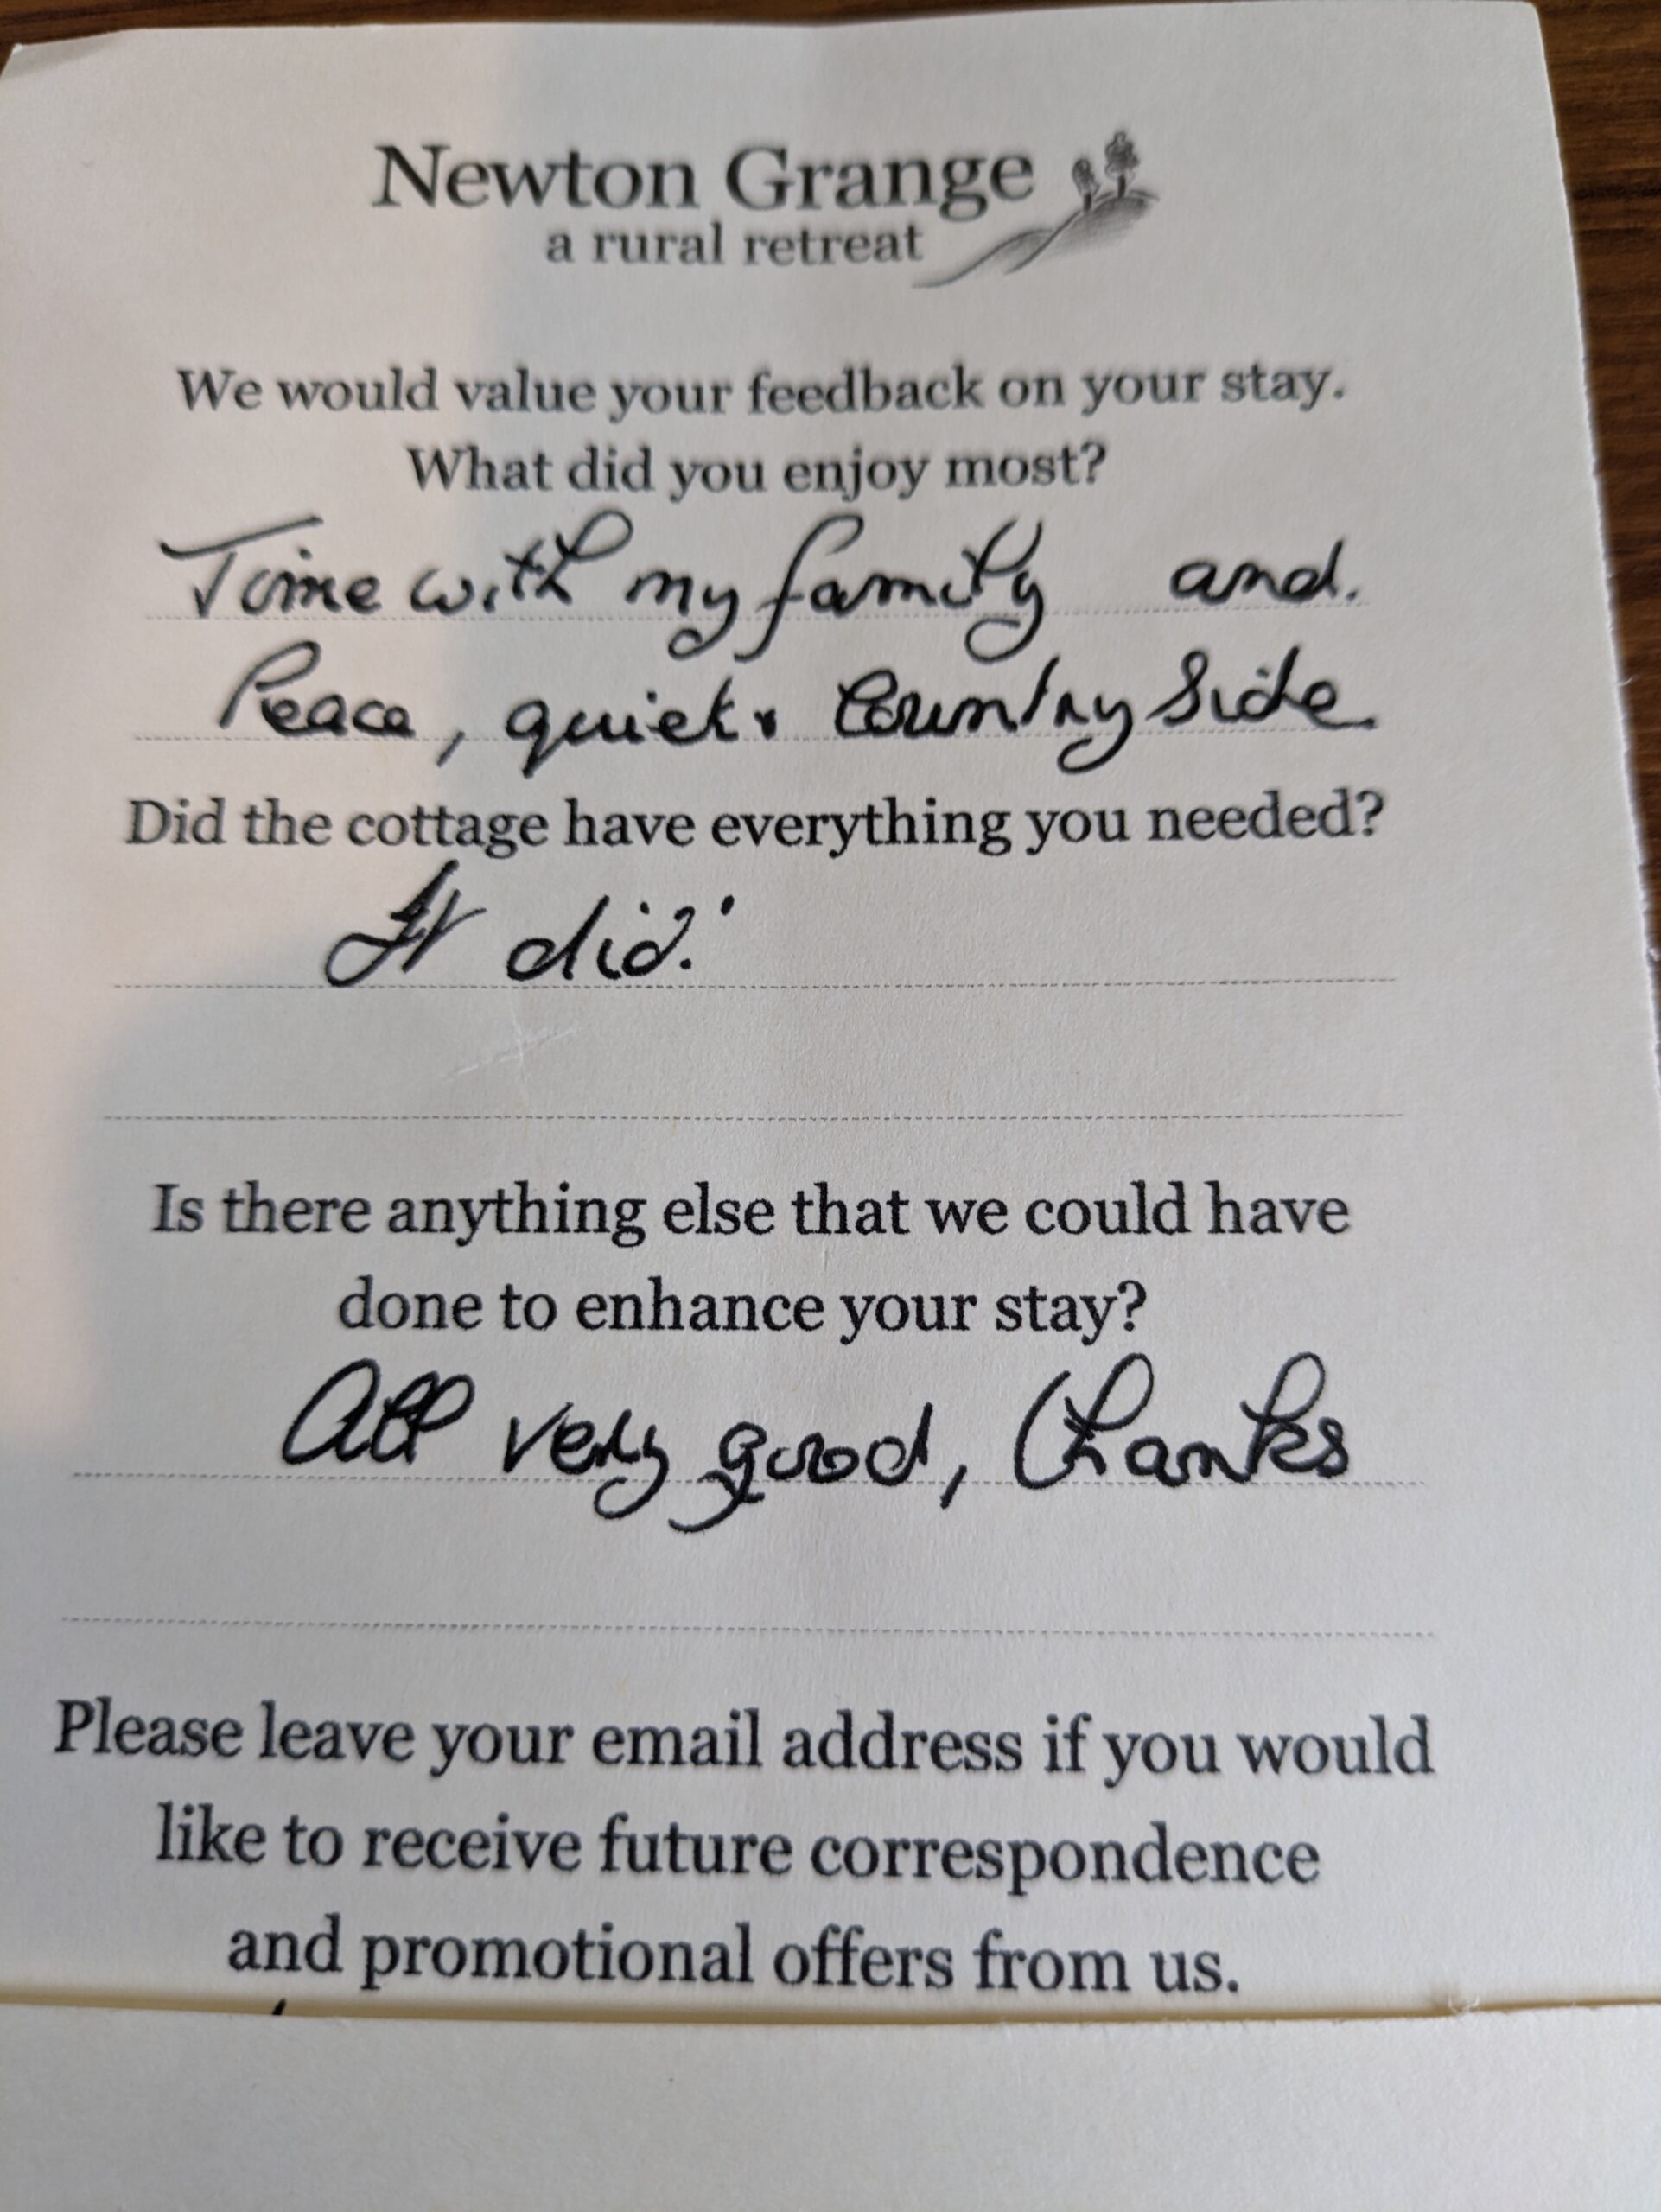 Newton Grange
a rural retreat
We would value your feedback on your stay.
What did you enjoy most?
Time with my family and.
Peace, quiet & Country Side
Did the cottage have everything you needed?
It did.'
Is there anything else that we could have
done to enhance your stay?
All very good, thanks
Please leave your email address if you would
like to receive future correspondence
and promotional offers from us.